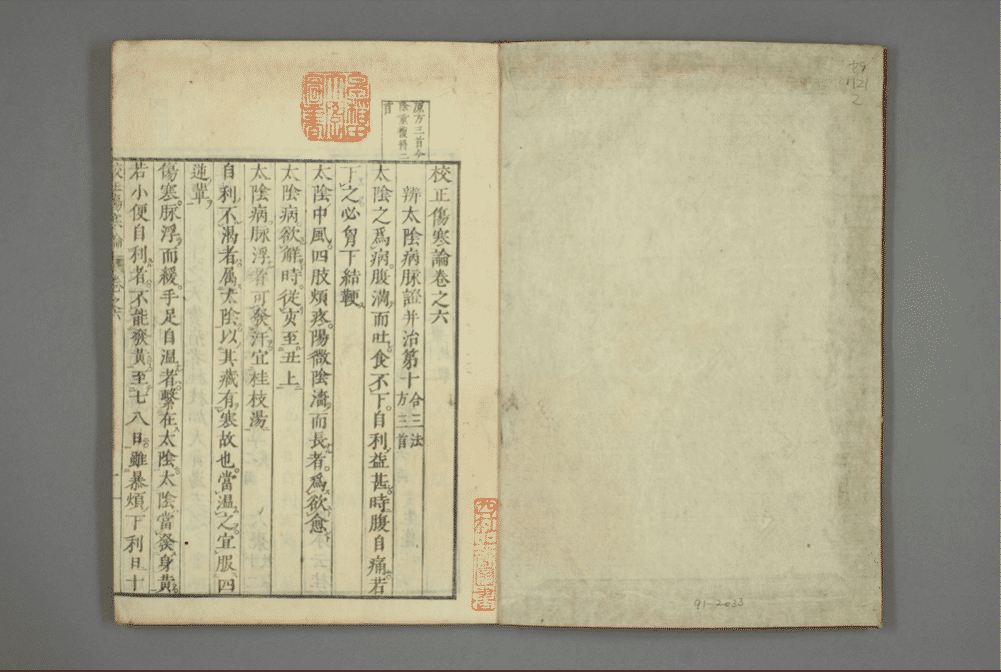 校正傷寒論卷之六
辨太陰病脉證并治第十合三法方三首
太陰之爲病腹滿而吐食不下自利益甚時腹自痛若
下之必胷下結鞕
太陰中風四肢煩疼陽微陰濇而長者爲欲愈
太陰病欲解時從亥至丑上
太陰病脉浮者可發汗宜桂枝湯
自利不渴者属太陰以其藏有寒故也當温之宜服四
逆軰
傷寒脉浮而緩手足自温者繫在太陰太陰當發身黄
若小便自利者不能發黄至七八日雖暴煩下利日十
原方三首今
除重複得二
首
91-2033